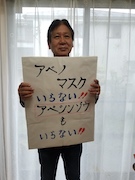 アベノ
マスク
いらない!!
アベシンゾウ
も
いらない!!